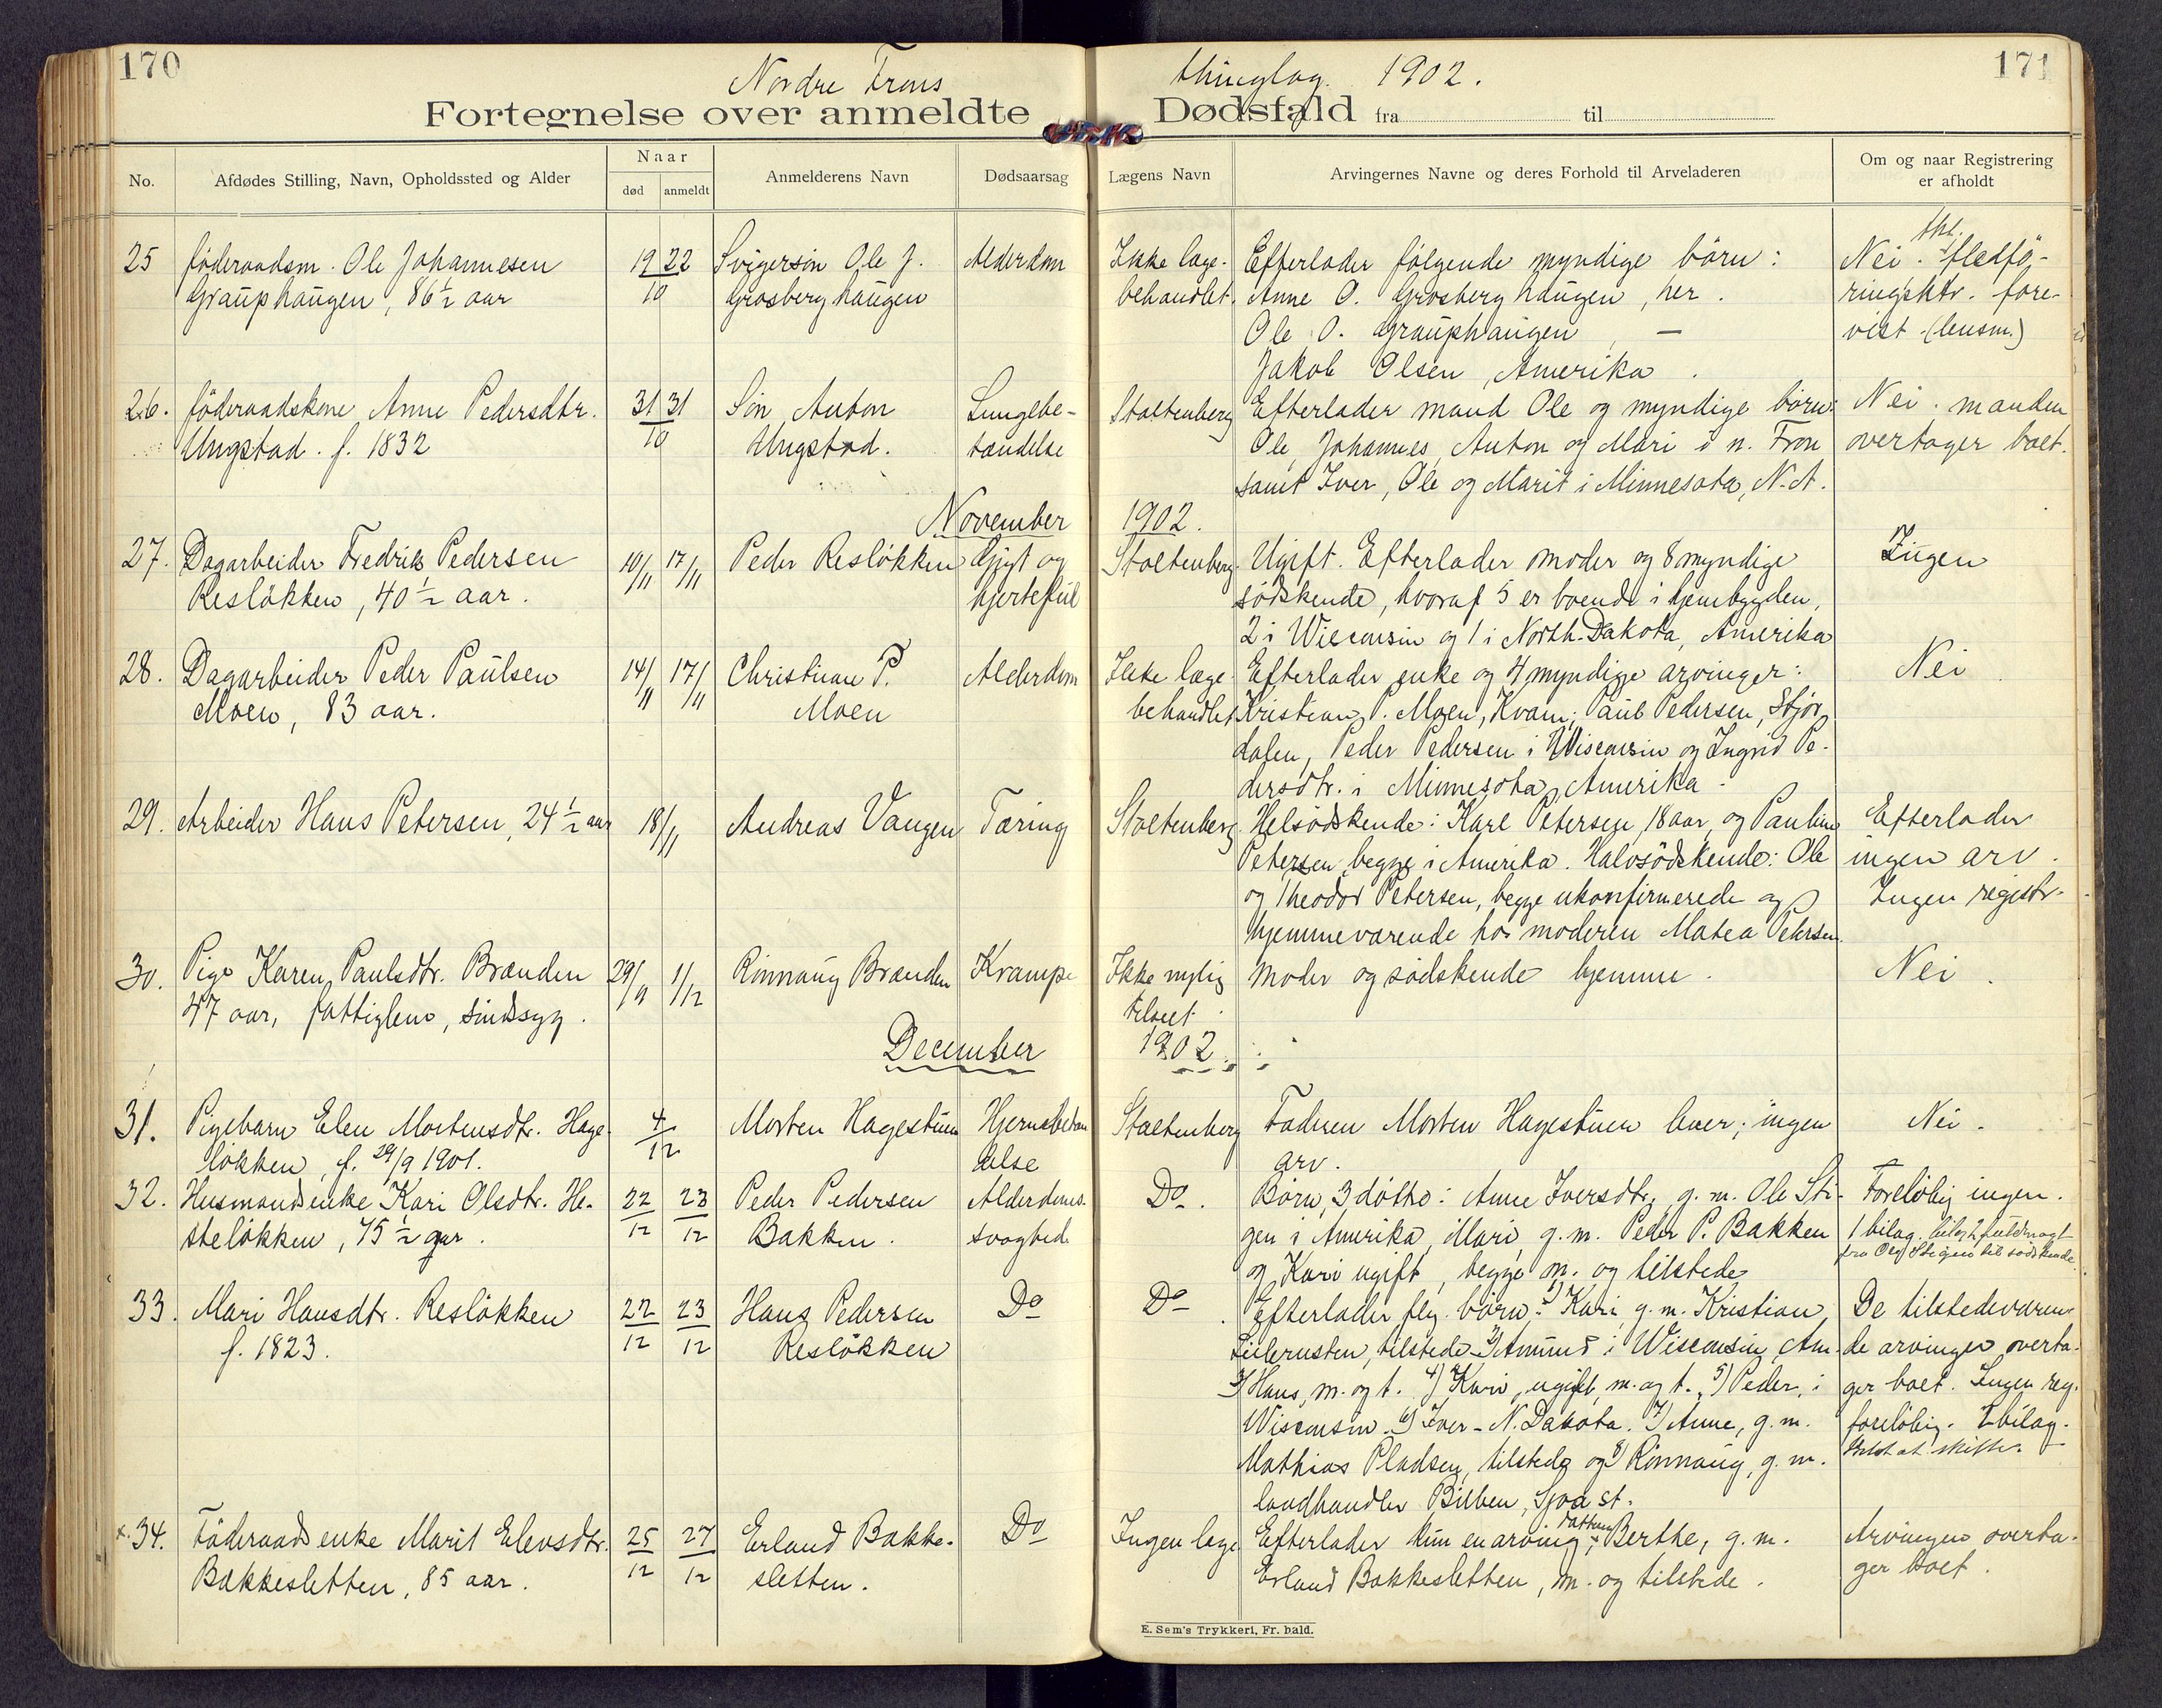 170
171
Nordre Frons thinglag. 1902.
Fortegnelse over anmeldte Dødsfald fra til
No.
Afdødes Stilling, Navn, Opholdssted og Alder
Naar
død anmeldt
Anmelderens Navn
Dødsaarsag
Lægens Navn
Arvingernes Navne og deres Forhold til Arveladeren
Om og naar Registrering
er afholdt
25 föderaadsm. Ole Johannesen 19 22 Svigersön Ole J. Alderdom Ikke læge- Efterlader følgende myndige börn: Nei. fledfö-
Grauphaugen, 86½ aar 10 Grosberghaugen behandlet. Anne O. Grosberghaugen, her. ringsktr. fore-
Ole O. Grauphaugen, — vist (lensm.)
Jakob Olsen, Amerika.
26. föderaadskone Anne Pedersdtr. 31 31 Sön Anton Lungebe- Stoltenberg Efterlader mand Ole og myndige börn: Nei. manden
Ungstad. f. 1832 10 Ungstad. tændelse Ole, Johannes, Anton og Mari i n. Fron overtager boet.
samt Iver, Ole og Marit i Minnesota, N.A.
November 1902.
27. Dagarbeider Fredrik Pedersen 10/11 17/11 Peder Reslökken Gigt og Stoltenberg. Ugift. Efterlader moder og 8 myndige Ingen
Reslökken, 40½ aar. hjertefeil södskende, hvoraf 5 er boende i hjembygden,
2 i Wisconsin og 1 i North-Dakota, Amerika
28. Dagarbeider Peder Paulsen 14/11 17/11 Christian P. Alderdom Ikke læge Efterlader enke og 4 myndige arvinger: Nei
Moen, 83 aar. Moen behandlet Kristian P. Moen, Kvam; Paul Pedersen, Stjör-
dalen, Peder Pedersen i Wisconsin og Ingrid Pe-
dersdtr. i Minnesota, Amerika.
29. Arbeider Hans Petersen, 24½ aar 18/11 Andreas Vangen Tæring Stoltenberg. Helsödskende: Karl Petersen, 18 aar, og Pauline Efterlader
Petersen begge i Amerika. Halvsödskende: Ole ingen arv.
og Theodor Petersen, begge ukonfirmerede og Ingen registr.
hjemmeværende hos moderen Matea Petersen.
30. Pige Karen Paulsdtr. Brænden 29/11 1/12 Rönnaug Brænden Krampe Ikke nylig Moder og södskende hjemme. Nei.
47 aar, fattiglem, sindssyg. tilseet.
December 1902.
31. Pigebarn Elen Mortensdtr. Hage- 4/12 Morten Hagestuen Hjernebetæn Stoltenberg Faderen Morten Hagestuen lever; ingen Nei.
lökken, f. 29/9 1901. delse arv.
32. Husmandsenke Kari Olsdtr. He- 22/12 23/12 Peder Pedersen Alderdoms- Do. Börn, 3 döttre: Anne Iversdtr., g. m. Ole Sti- Foreløbig ingen.
steløkken, 75½ aar. Bakken. svaghed. gen i Amerika, Mari, g. m. Peder P. Bakken 1 bilag. bilag 2 fuldmagt
og Kari ugift, begge m. og tilstede fra Ole Stigen til södskende.
33. Mari Hansdtr. Reslökken 22/12 23/12 Hans Pedersen Do Do Efterlader flg. börn: 1) Kari, g. m. Kristian De tilstedeværen-
f. 1823. Reslökken tilstede 2) Amund i Wisconsin, Am. de arvinger overta-
3) Hans, m. og t. 4) Kari, ugift, m. og t., 5) Peder, i ger boet. Ingen reg.
Wisconsin. 6) Iver - N. Dakota. 7) Anne, g. m. foreløbig. 2 bilag.
Mathias Pladsen, tilstede og 8) Rönnaug, g. m.
landhandler Bilben, Sjoa st.
x. 34. Föderaadsenke Marit Elevsdtr. 25/12 27/12 Erland Bakke- Do Ingen læge Efterlader kun en arving, datteren Berthe, g. m. Arvingen overta-
Bakkesletten, 85 aar. sletten. Erland Bakkesletten, m. og tilstede. ger boet.
E. Sem's Trykkeri, Fr. hald.